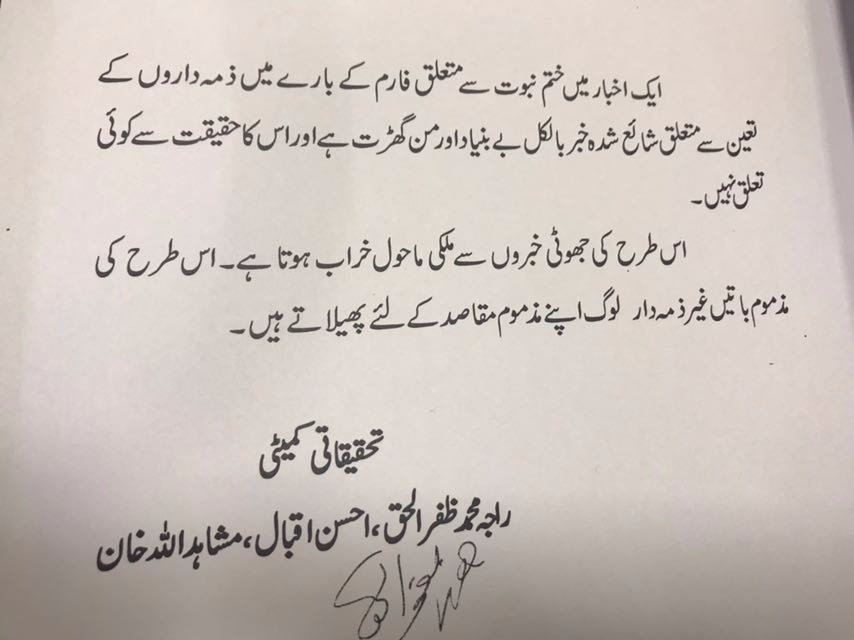 ایک اخبار میں ختم نبوت سے متعلق فارم کے بارے میں ذمہ داروں کے
تعین سے متعلق شائع شدہ خبر بالکل بے بنیاد اور من گھڑت ہے اور اس کا حقیقت سے کوئی
تعلق نہیں۔
اس طرح کی جھوٹی خبروں سے ملکی ماحول خراب ہوتا ہے۔ اس طرح کی
مذموم باتیں غیر ذمہ دار لوگ اپنے مذموم مقاصد کے لئے پھیلاتے ہیں۔
تحقیقاتی کمیٹی
راجہ محمد ظفر الحق، احسن اقبال، مشاہد اللہ خان